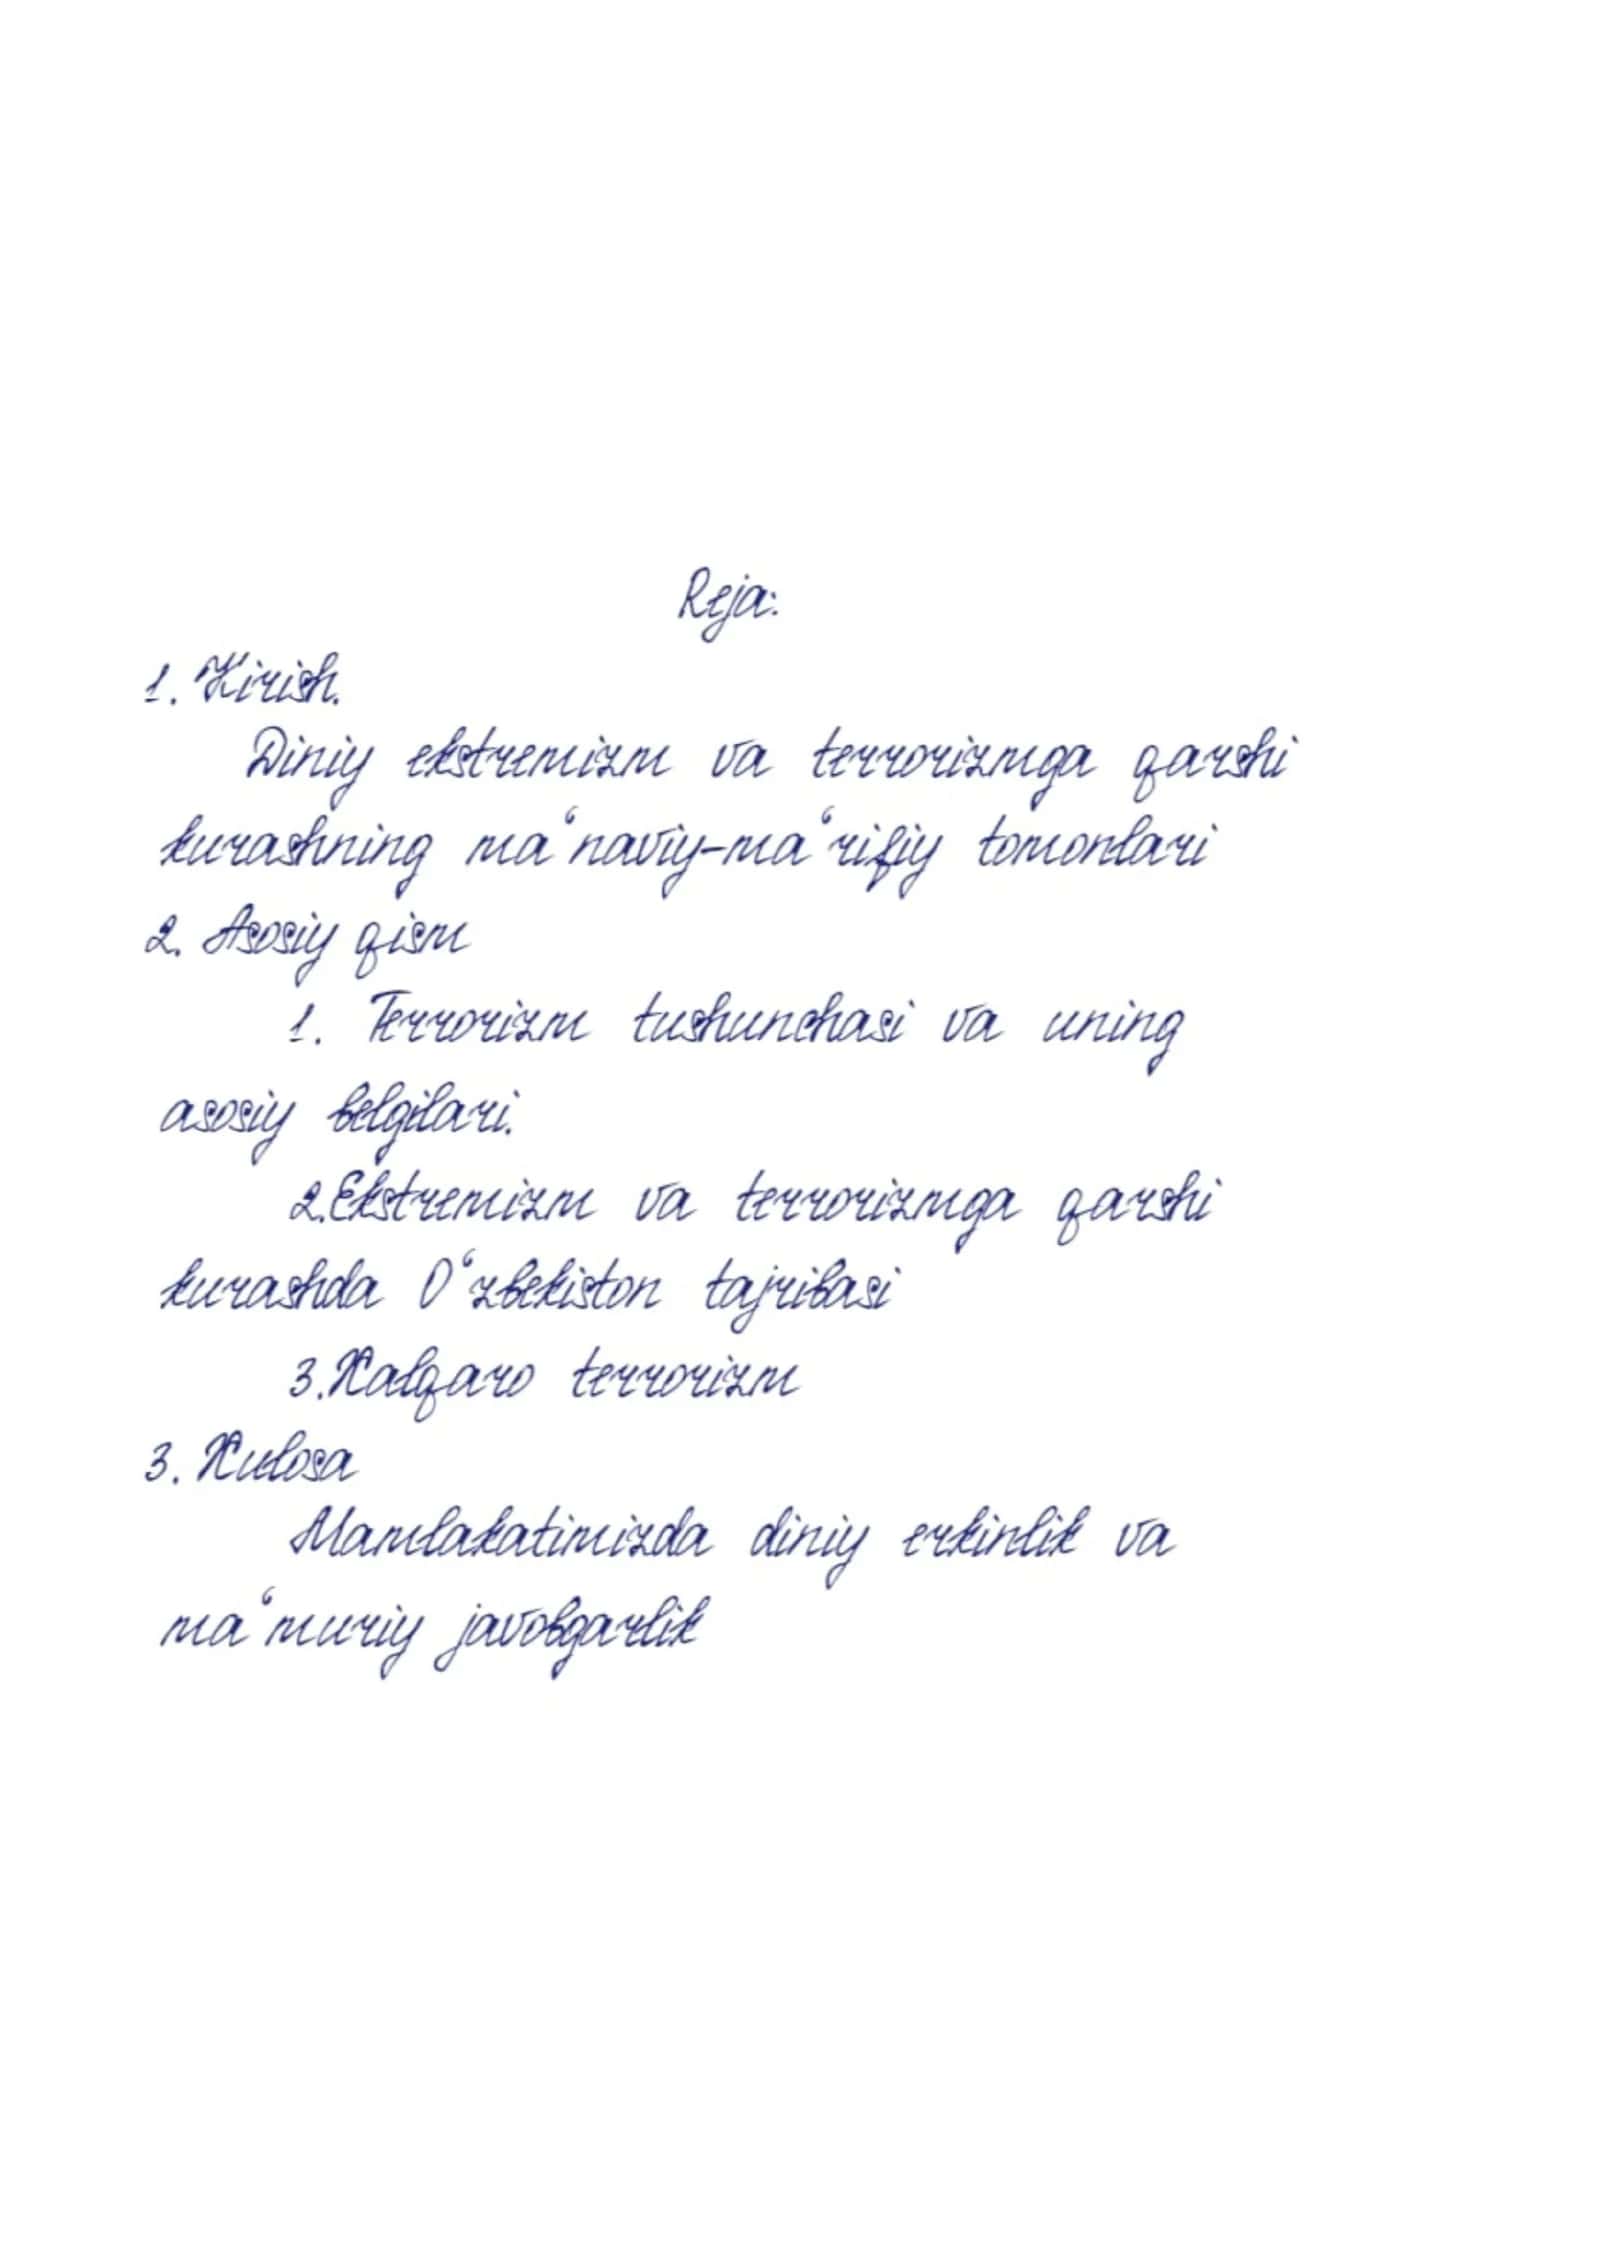 Reja:
1. Kirish.
Diniy ekstremizm va terrorizmga qarshi
kurashning ma‘naviy-ma‘rifiy tomonlari
2. Asosiy qism
1. Terrorizm tushunchasi va uning
asosiy belgilari.
2.Ekstremizm va terrorizmga qarshi
kurashda O‘zbekiston tajribasi
3.Xalqaro terrorizm
3. Xulosa
Mamlakatimizda diniy erkinlik va
ma‘muriy javobgarlik